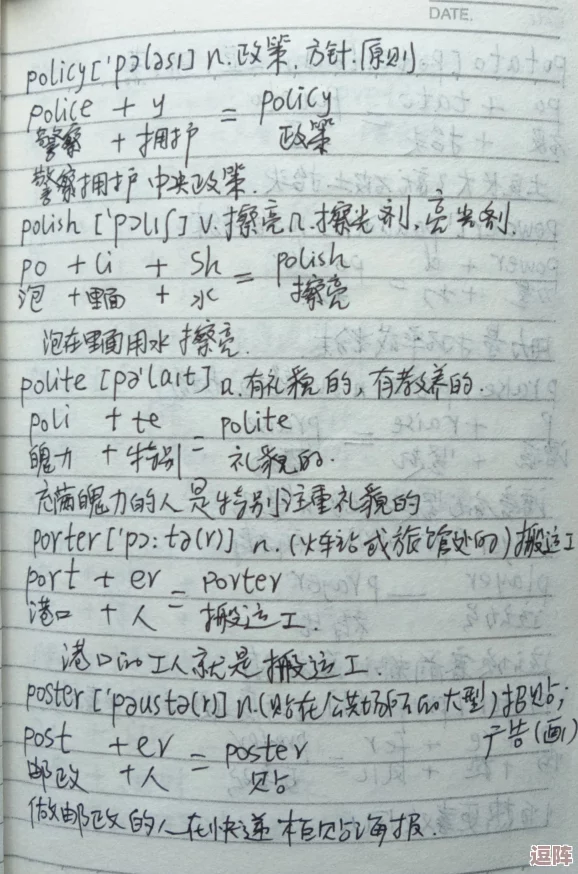 DATE.
policy ['pɔləsɪ] n. 政策, 方针. 原则
police + y = policy
警察 + 拥护 政策
警察拥护中央政策.
polish ['pɔlɪʃ] v. 擦亮 n. 擦光剂, 亮光剂.
po + li + sh = polish
泡 + 里面 + 水 擦亮
泡在里面用水擦亮.
polite [pə'laɪt] a. 有礼貌的, 有教养的.
poli + te = polite
魄力 + 特别 礼貌的.
充满魄力的人是特别注重礼貌的
porter ['pɔ:tə(r)] n. (火车站或旅馆处的) 搬运工
port + er = porter
港口 + 人 搬运工.
港口的工人就是搬运工.
poster ['pəustə(r)] n. (贴在公共场所的大型) 招贴;
广告(画)
post + er = poster
邮政 + 人 贴
做邮政的人在快递柜贴海报.
逗阵